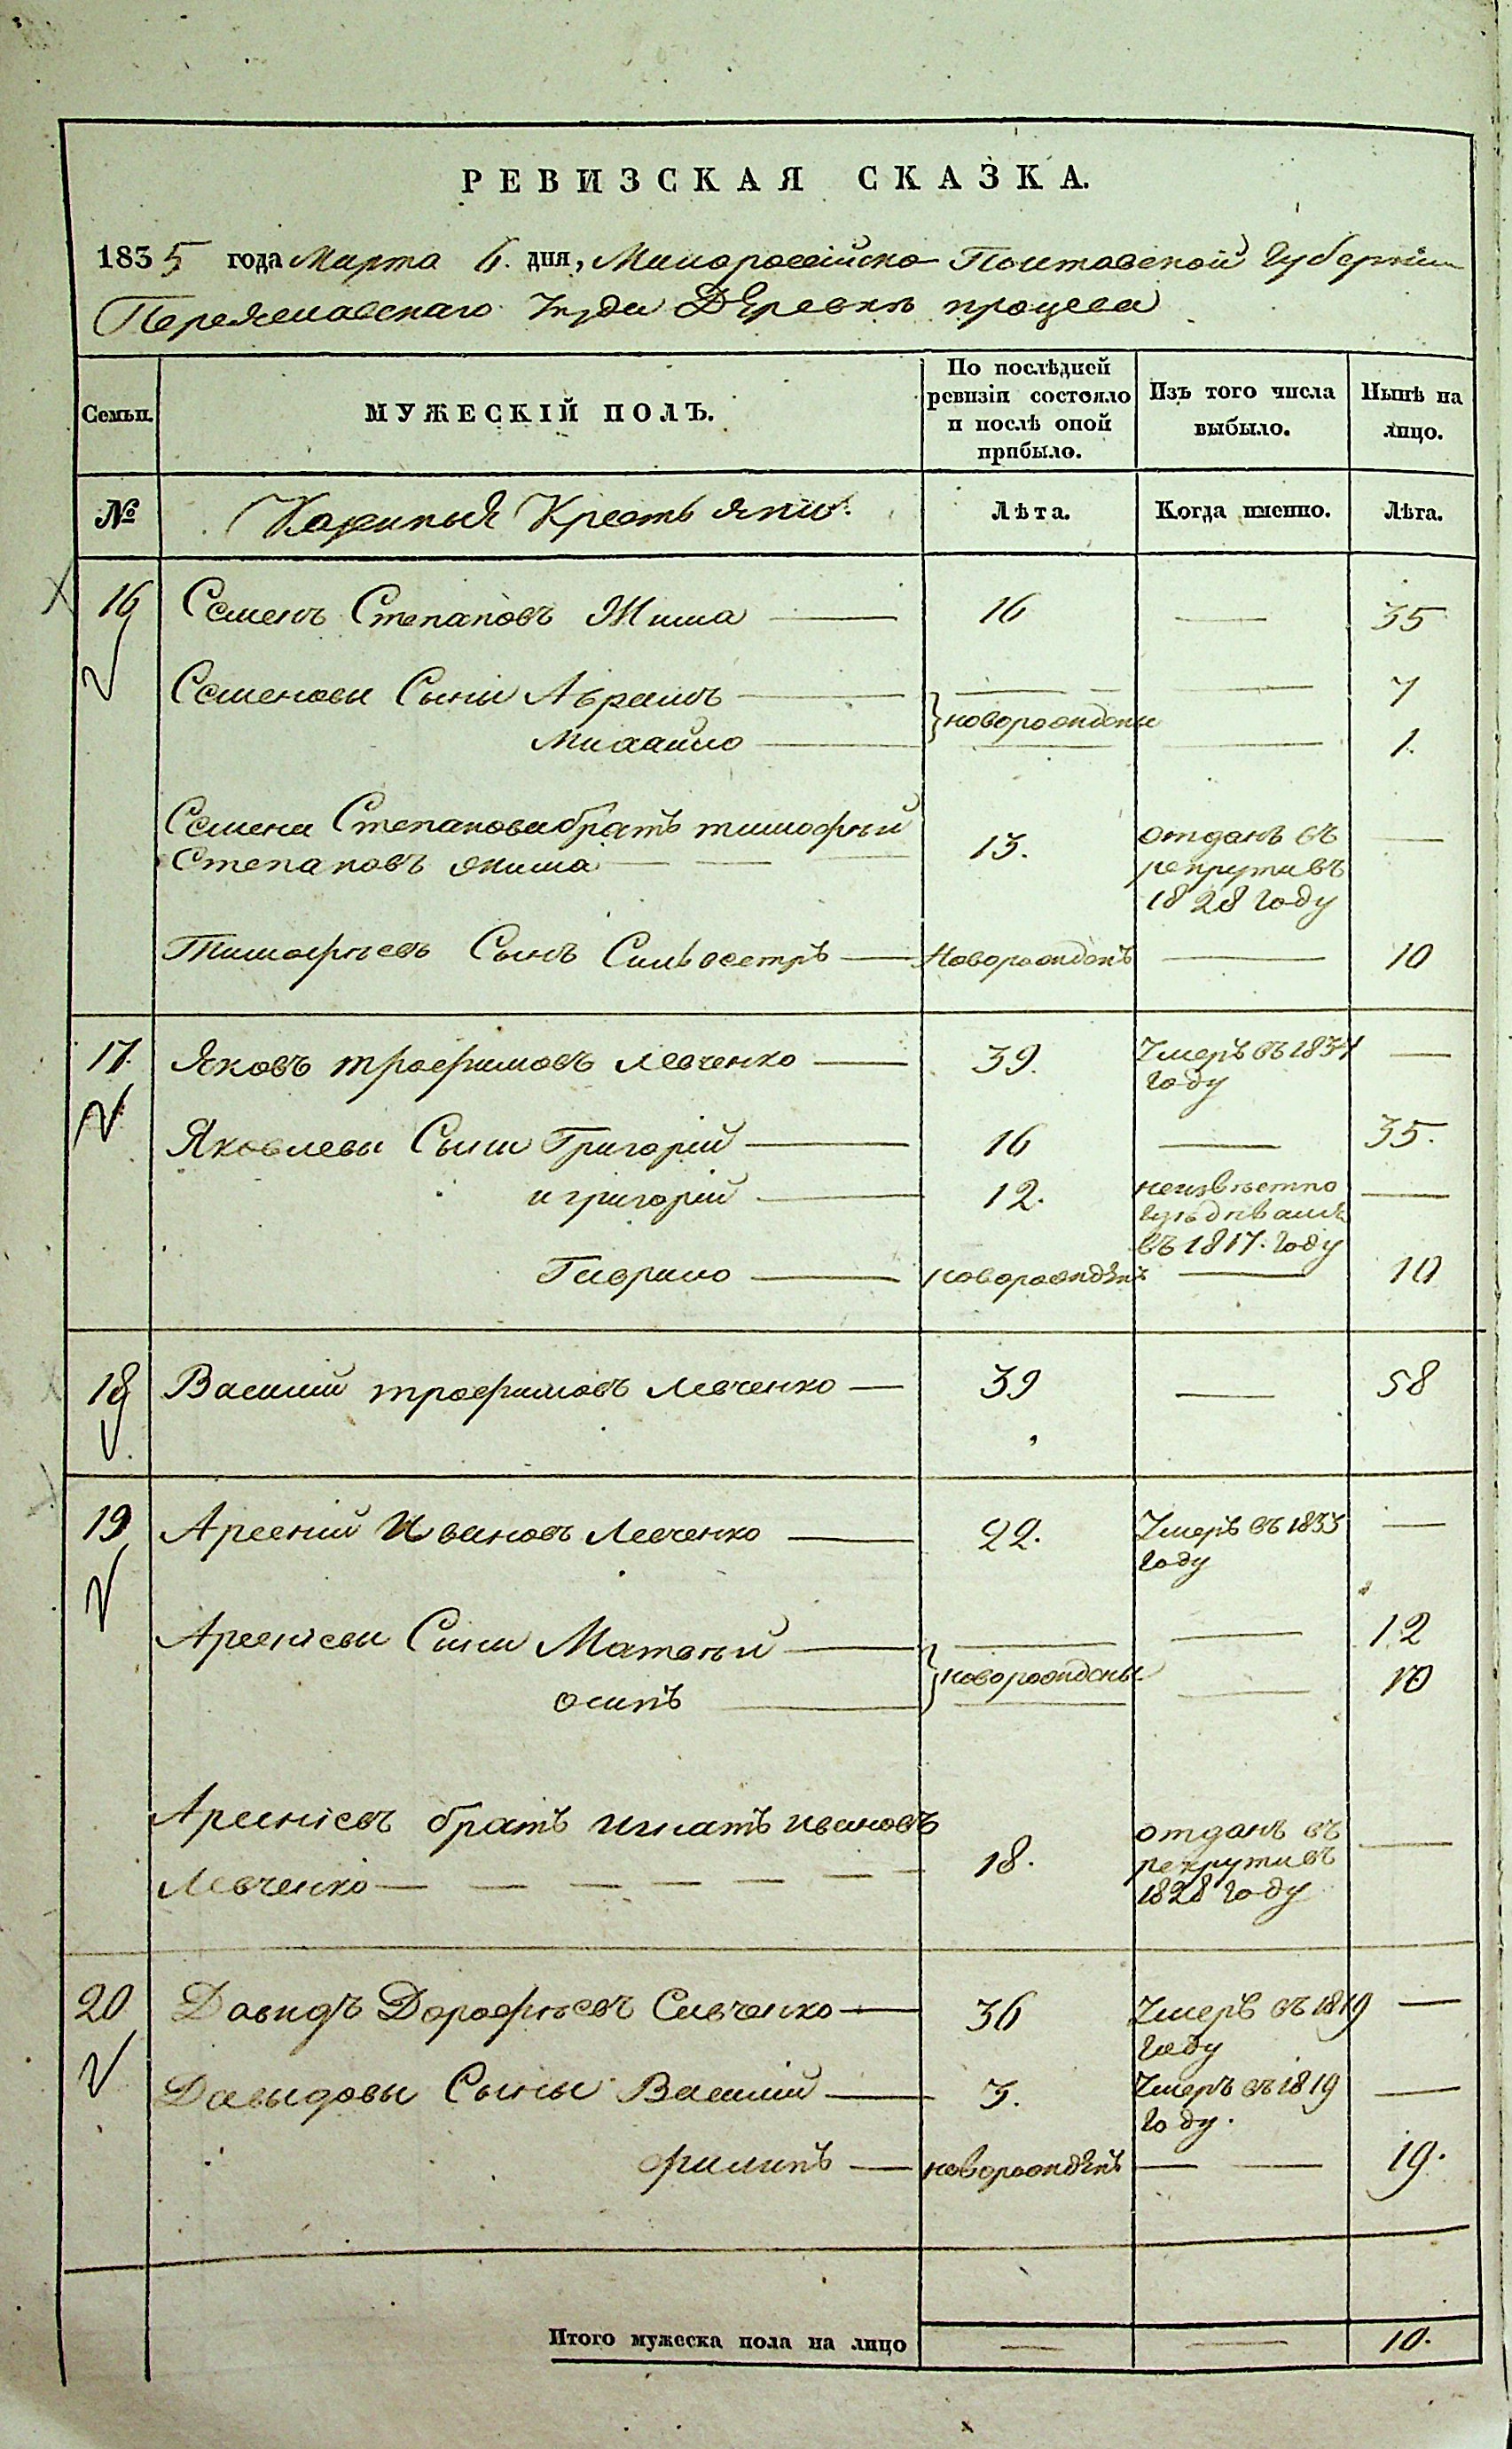 РЕВИЗСКАЯ СКАЗКА.
1835 года Марта 6. дня, Малоросс​ійско Полтавской Губерніи
Переяславскаго уезда Деревни процева
Семьи.
МУЖЕСКІЙ ПОЛЪ.
По послѣдней ревизіи состояло и послѣ оной прибыло.
Изъ того числа выбыло.
Нынѣ на лицо.
№
Казенныя Крестьяни.
Лѣта.
Когда именно.
Лѣта.
16 Семенъ Степановъ Жила 16 — 35
Семенови Сыни Абрамъ — — 7
новорожденны
Михайло — — 1.
Семена Степанова братъ тимофѣй
Степановъ жила 13. отданъ въ рекрути въ 1828 году —
Тимофѣевъ Сынъ Сильвестръ — Новорожденъ — 10
17. Яковъ трофимовъ левченко — 39. Умеръ въ 1834 году —
Яковлеви Сыни Григорій — 16 — 35.
и григорій — 12. неизвѣстно гдѣ дѣвался въ 1817. году —
Гаврило — новорожденъ — 10
18 Василий трофимовъ левченко — 39 — 58
19 Арсеній Ивановъ Левченко — 22. Умеръ въ 1833 году —
Арсеніеви Сини Матвѣй — — 12
новорожденны
осипъ — — 10
Арсеніевъ братъ игнатъ ивановъ
Левченко — 18. отданъ въ рекрути въ 1828 году —
20 Давидъ Дорофѣевъ Савченко — 36 Умеръ въ 1819 году —
Давыдовы Сыны Василий — 3. Умеръ въ 1819 году. —
филипъ — новорожденъ — 19.
Итого мужеска пола на лицо — — 10.